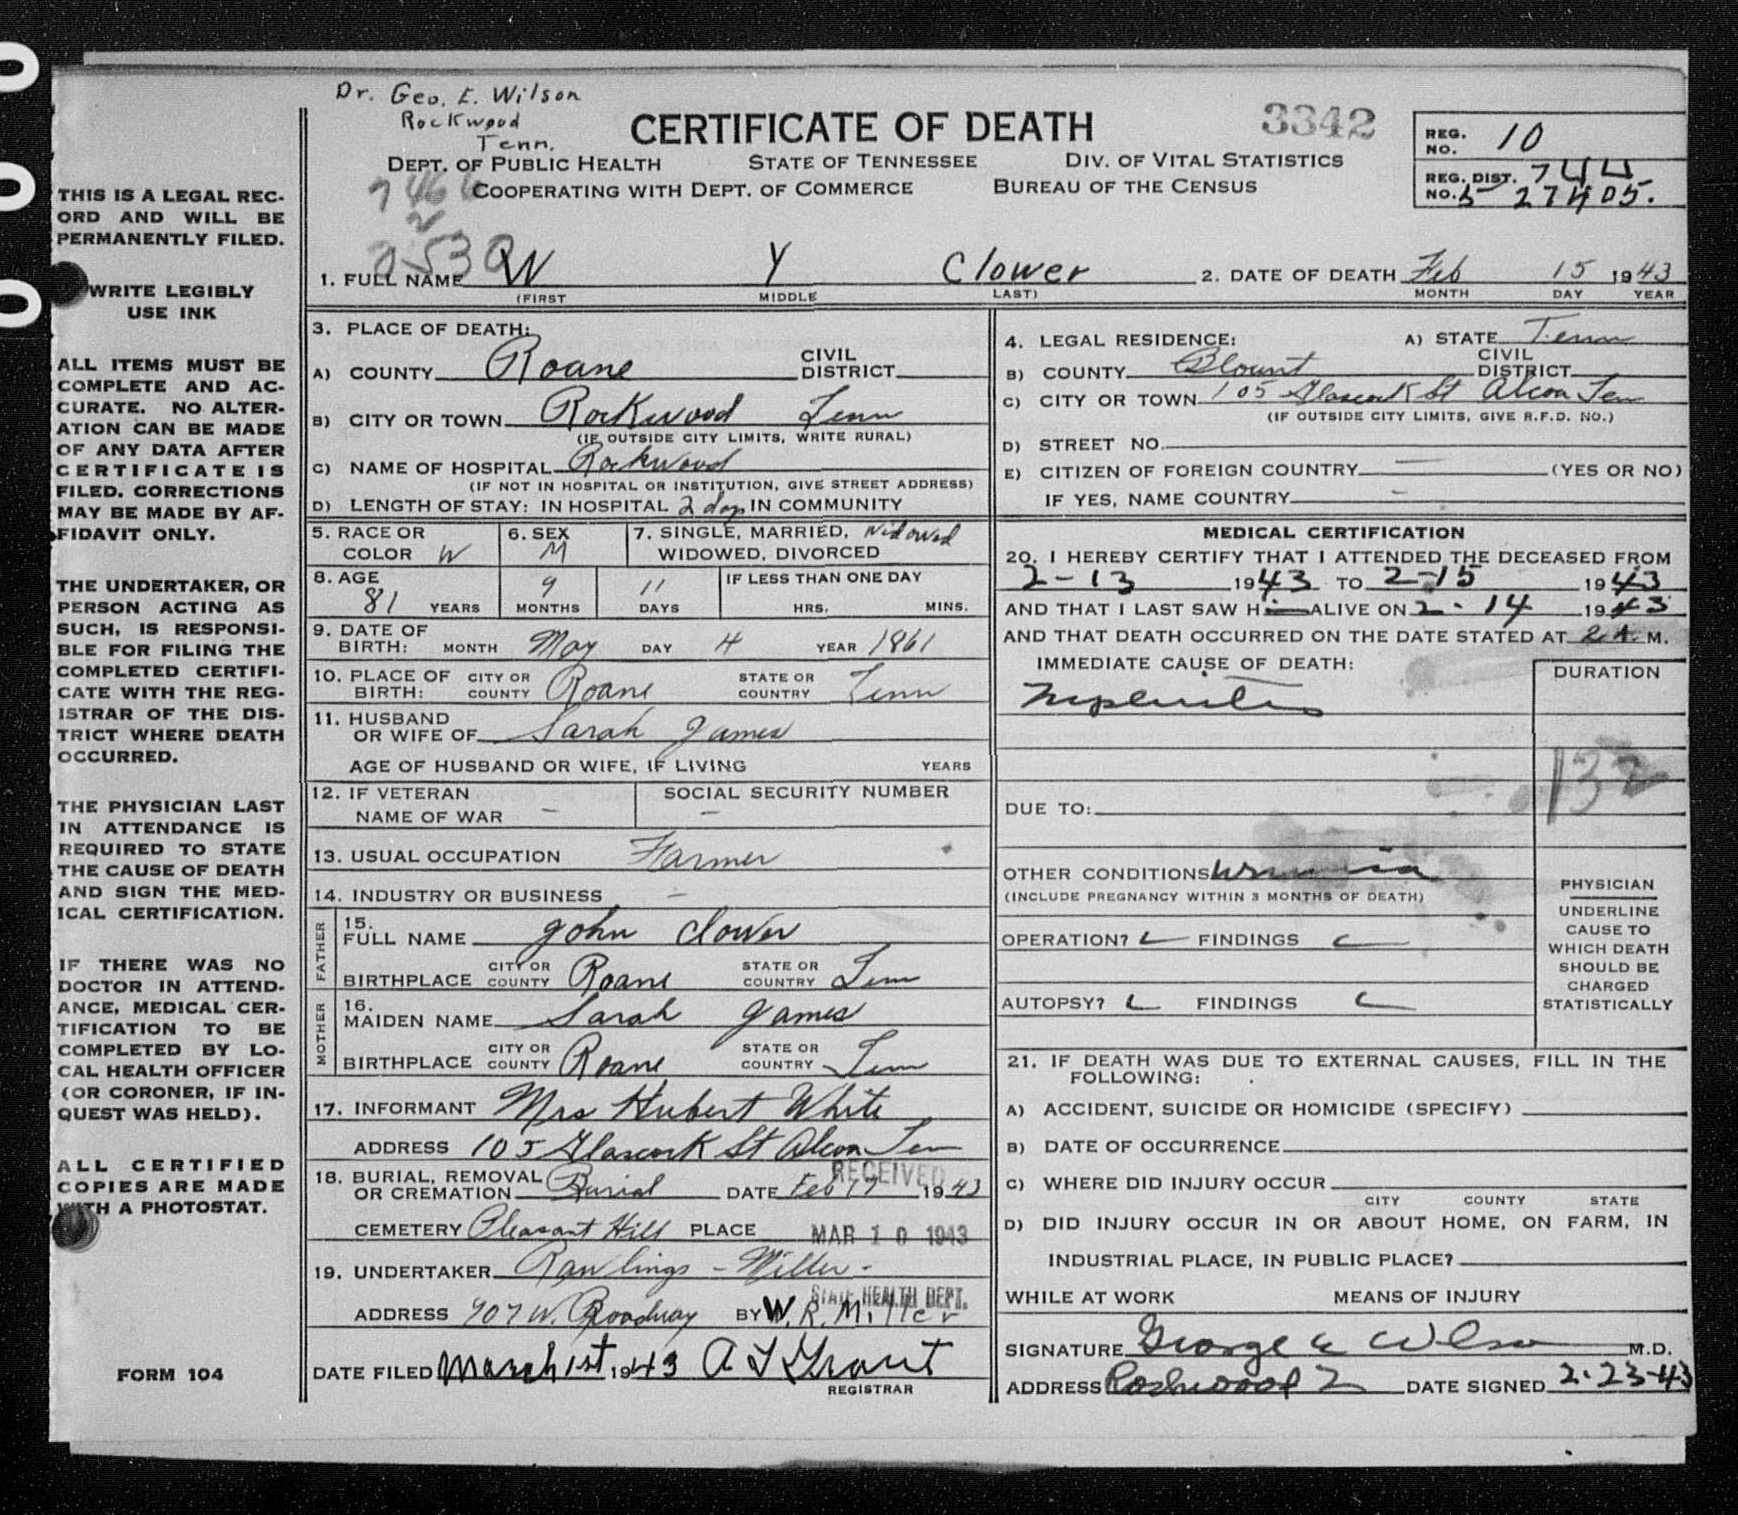 Dr. Geo. E. Wilson
Rockwood
Tenn.
CERTIFICATE OF DEATH
3342
REG. NO. 10
DEPT. OF PUBLIC HEALTH STATE OF TENNESSEE DIV. OF VITAL STATISTICS
COOPERATING WITH DEPT. OF COMMERCE BUREAU OF THE CENSUS
REG. DIST. NO. 744
5 27405.
THIS IS A LEGAL REC-
ORD AND WILL BE
PERMANENTLY FILED.
WRITE LEGIBLY
USE INK
ALL ITEMS MUST BE
COMPLETE AND AC-
CURATE. NO ALTER-
ATION CAN BE MADE
OF ANY DATA AFTER
CERTIFICATE IS
FILED. CORRECTIONS
MAY BE MADE BY AF-
FIDAVIT ONLY.
THE UNDERTAKER, OR
PERSON ACTING AS
SUCH, IS RESPONSI-
BLE FOR FILING THE
COMPLETED CERTIFI-
CATE WITH THE REG-
ISTRAR OF THE DIS-
TRICT WHERE DEATH
OCCURRED.
THE PHYSICIAN LAST
IN ATTENDANCE IS
REQUIRED TO STATE
THE CAUSE OF DEATH
AND SIGN THE MED-
ICAL CERTIFICATION.
IF THERE WAS NO
DOCTOR IN ATTEND-
ANCE, MEDICAL CER-
TIFICATION TO BE
COMPLETED BY LO-
CAL HEALTH OFFICER
(OR CORONER, IF IN-
QUEST WAS HELD).
ALL CERTIFIED
COPIES ARE MADE
WITH A PHOTOSTAT.
FORM 104
1. FULL NAME W Y Clower 2. DATE OF DEATH Feb 15 1943
(FIRST MIDDLE LAST) MONTH DAY YEAR
3. PLACE OF DEATH:
A) COUNTY Roane CIVIL DISTRICT
B) CITY OR TOWN Rockwood Tenn
(IF OUTSIDE CITY LIMITS, WRITE RURAL)
C) NAME OF HOSPITAL Rockwood
(IF NOT IN HOSPITAL OR INSTITUTION, GIVE STREET ADDRESS)
D) LENGTH OF STAY: IN HOSPITAL 2 days IN COMMUNITY
5. RACE OR COLOR W 6. SEX M 7. SINGLE, MARRIED, WIDOWED, DIVORCED Widowed
8. AGE 81 YEARS 9 MONTHS 11 DAYS IF LESS THAN ONE DAY HRS. MINS.
9. DATE OF BIRTH: MONTH May DAY 4 YEAR 1861
10. PLACE OF BIRTH: CITY OR COUNTY Roane STATE OR COUNTRY Tenn
11. HUSBAND OR WIFE OF Sarah James
AGE OF HUSBAND OR WIFE, IF LIVING YEARS
12. IF VETERAN NAME OF WAR – SOCIAL SECURITY NUMBER –
13. USUAL OCCUPATION Farmer
14. INDUSTRY OR BUSINESS –
FATHER
15. FULL NAME John Clower
BIRTHPLACE CITY OR COUNTY Roane STATE OR COUNTRY Tenn
MOTHER
16. MAIDEN NAME Sarah James
BIRTHPLACE CITY OR COUNTY Roane STATE OR COUNTRY Tenn
17. INFORMANT Mrs Hubert White
ADDRESS 105 Glascock St Alcoa Ten
18. BURIAL, REMOVAL OR CREMATION Burial DATE Feb 17 1943
RECEIVED
CEMETERY Pleasant Hill PLACE
MAR 10 1943
19. UNDERTAKER Rawlings - Miller -
STATE HEALTH DEPT.
ADDRESS 907 W. Broadway BY W. R. Miller
DATE FILED March 1st 1943 A T Grant
REGISTRAR
4. LEGAL RESIDENCE: A) STATE Tenn
B) COUNTY Blount CIVIL DISTRICT
C) CITY OR TOWN 105 Glascock St Alcoa Ten
(IF OUTSIDE CITY LIMITS, GIVE R.F.D. NO.)
D) STREET NO.
E) CITIZEN OF FOREIGN COUNTRY — (YES OR NO)
IF YES, NAME COUNTRY –
MEDICAL CERTIFICATION
20. I HEREBY CERTIFY THAT I ATTENDED THE DECEASED FROM
2-13 1943 TO 2-15 1943
AND THAT I LAST SAW H ALIVE ON 2-14 1943
AND THAT DEATH OCCURRED ON THE DATE STATED AT 2 A. M.
IMMEDIATE CAUSE OF DEATH: DURATION
Nephritis
132
DUE TO:
OTHER CONDITIONS uremia
(INCLUDE PREGNANCY WITHIN 3 MONTHS OF DEATH)
OPERATION? FINDINGS
AUTOPSY? FINDINGS
PHYSICIAN
UNDERLINE
CAUSE TO
WHICH DEATH
SHOULD BE
CHARGED
STATISTICALLY
21. IF DEATH WAS DUE TO EXTERNAL CAUSES, FILL IN THE
FOLLOWING:
A) ACCIDENT, SUICIDE OR HOMICIDE (SPECIFY)
B) DATE OF OCCURRENCE
C) WHERE DID INJURY OCCUR
CITY COUNTY STATE
D) DID INJURY OCCUR IN OR ABOUT HOME, ON FARM, IN
INDUSTRIAL PLACE, IN PUBLIC PLACE?
WHILE AT WORK MEANS OF INJURY
SIGNATURE George E Wilson M.D.
ADDRESS Rockwood T DATE SIGNED 2-23-43